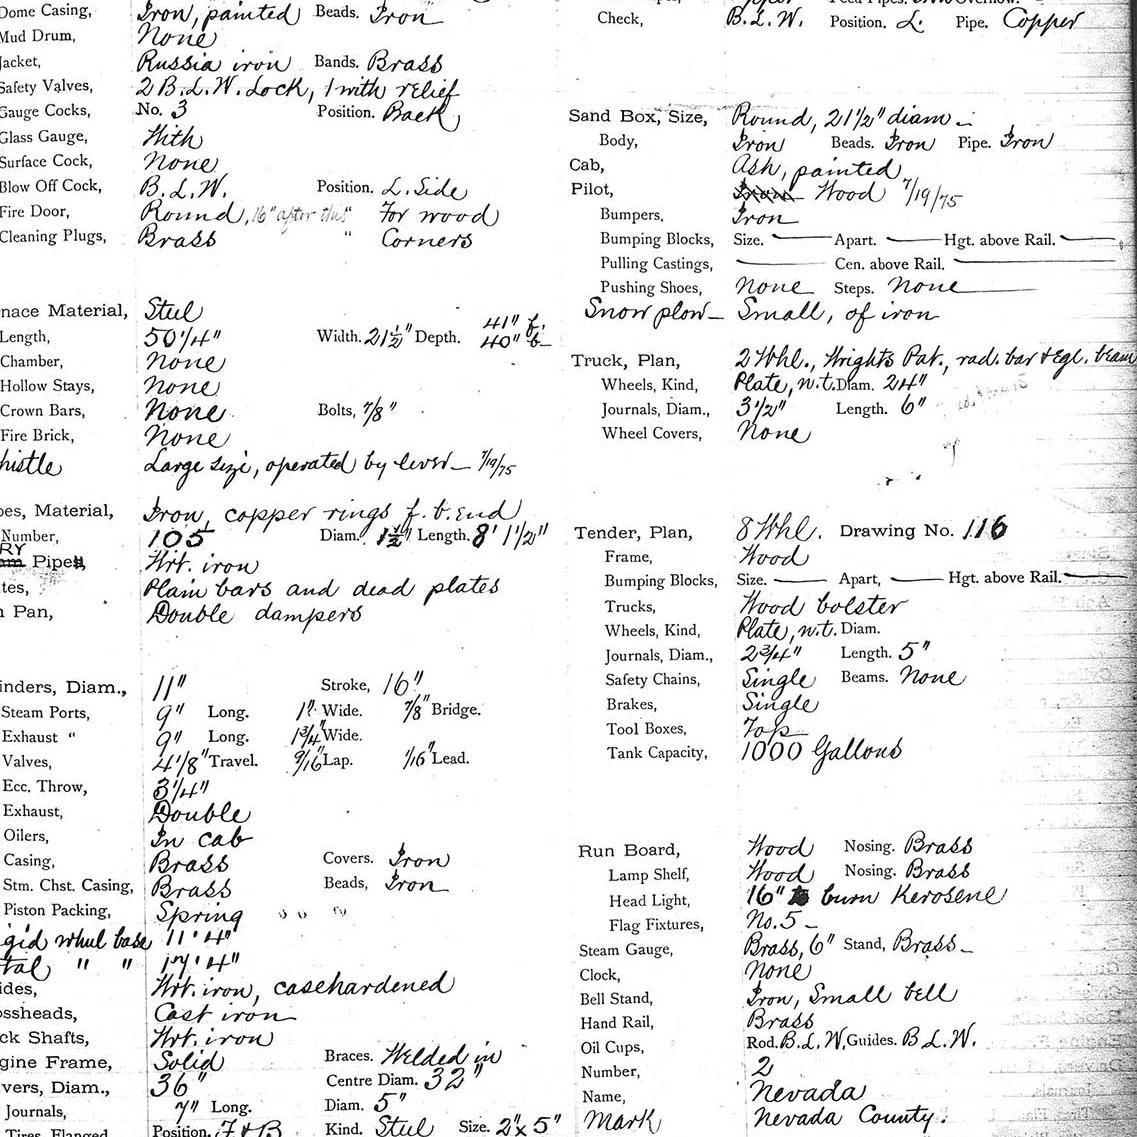 Dome Casing, Iron, painted Beads. Iron
Mud Drum, None
Jacket, Russia iron Bands. Brass
Safety Valves, 2 B.L.W. Lock, 1 with relief
Gauge Cocks, No. 3 Position. Back
Glass Gauge, With
Surface Cock, None
Blow Off Cock, B.L.W. Position. L. Side
Fire Door, Round, 16" after this " For wood
Cleaning Plugs, Brass " Corners
nace Material, Steel
Length, 50 1/4" Width. 21 1/2" Depth. 41" f. 40" b.
Chamber, None
Hollow Stays, None
Crown Bars, None Bolts, 7/8"
Fire Brick, None
histle Large size, operated by lever 7/19/75
es, Material, Iron, copper rings f. b. end
Number, 105 Diam. 1 1/2" Length. 8' 1 1/2"
RY
Pipes, Wrt. iron
tes, Plain bars and dead plates
Pan, Double dampers
inders, Diam., 11" Stroke, 16"
Steam Ports, 9" Long. 1" Wide. 7/8" Bridge.
Exhaust " 9" Long. 1 3/4" Wide.
Valves, 4 1/8" Travel. 9/16" Lap. 1/16" Lead.
Ecc. Throw, 3 1/4"
Exhaust, Double
Oilers, In cab
Casing, Brass Covers. Iron
Stm. Chst. Casing, Brass Beads, Iron
Piston Packing, Spring
gid wheel base 11' 4"
tal " " 17' 4"
ides, Wrt. iron, casehardened
ossheads, Cast iron
ck Shafts, Wrt. iron
gine Frame, Solid Braces. Welded in
vers, Diam., 36" Centre Diam. 32"
Journals, 7" Long. Diam. 5"
Tires, Flanged Position. F & B Kind. Steel Size. 2" x 5"
Check, B.L.W. Position. L. Pipe. Copper
Sand Box, Size, Round, 21 1/2" diam
Body, Iron Beads. Iron Pipe. Iron
Cab, Ash, painted
Pilot, Iron Wood 7/19/75
Bumpers, Iron
Bumping Blocks, Size. Apart. Hgt. above Rail.
Pulling Castings, Cen. above Rail.
Pushing Shoes, None Steps. None
Snow plow Small, of iron
Truck, Plan, 2 Whl., Wrights Pat., rad. bar & Egl. beam
Wheels, Kind, Plate, w.t. Diam. 24"
Journals, Diam., 3 1/2" Length. 6"
Wheel Covers, None
Tender, Plan, 8 Whl. Drawing No. 116
Frame, Wood
Bumping Blocks, Size. Apart, Hgt. above Rail.
Trucks, Wood bolster
Wheels, Kind, Plate, w.t. Diam.
Journals, Diam., 2 3/4" Length. 5"
Safety Chains, Single Beams. None
Brakes, Single
Tool Boxes, Top
Tank Capacity, 1000 Gallons
Run Board, Wood Nosing. Brass
Lamp Shelf, Wood Nosing. Brass
Head Light, 16" to burn Kerosene
Flag Fixtures, No. 5
Steam Gauge, Brass, 6" Stand, Brass
Clock, None
Bell Stand, Iron, Small bell
Hand Rail, Brass
Oil Cups, Rod. B.L.W. Guides. B.L.W.
Number, 2
Name, Nevada
Mark Nevada County.